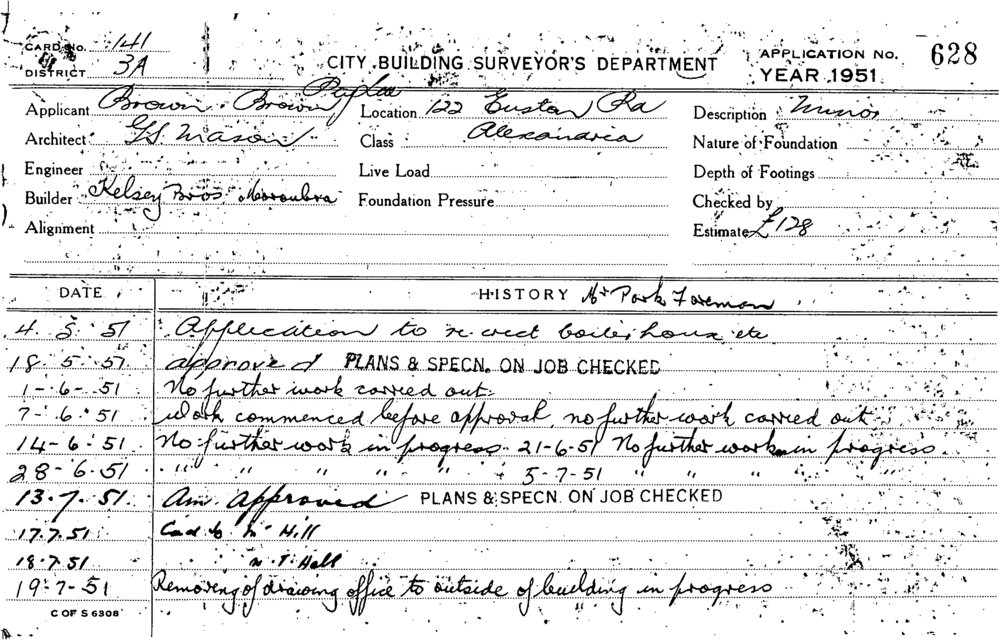 CARD No. 141
DISTRICT 3A
CITY BUILDING SURVEYOR'S DEPARTMENT
APPLICATION No. 628
YEAR 1951
Applicant Brown & Brown Location 122 Euston Rd Description Minor
Architect G.S. Mason Class Alexandria Nature of Foundation
Engineer Live Load Depth of Footings
Builder Kelsey Bros Maroubra Foundation Pressure Checked by
Alignment Estimate £128
DATE HISTORY Mr Park Foreman
4 5 51 Application to re erect boiler house etc
18 . 5 . 51 approved PLANS & SPECN. ON JOB CHECKED
1 - 6 - 51 No further work carried out.
7 - 6 . 51 Work commenced before approval, no further work carried out
14 - 6 . 51 No further work in progress 21-6-51 No further work in progress
28 - 6 . 51 " " " " " 5-7-51 " " " "
13 . 7 . 51 Am. Approved PLANS & SPECN. ON JOB CHECKED
17.7.51 Card to Mr Hill
18.7.51 " Hall
19-7-51 Removing of drawing office to outside of building in progress
C OF S 6308